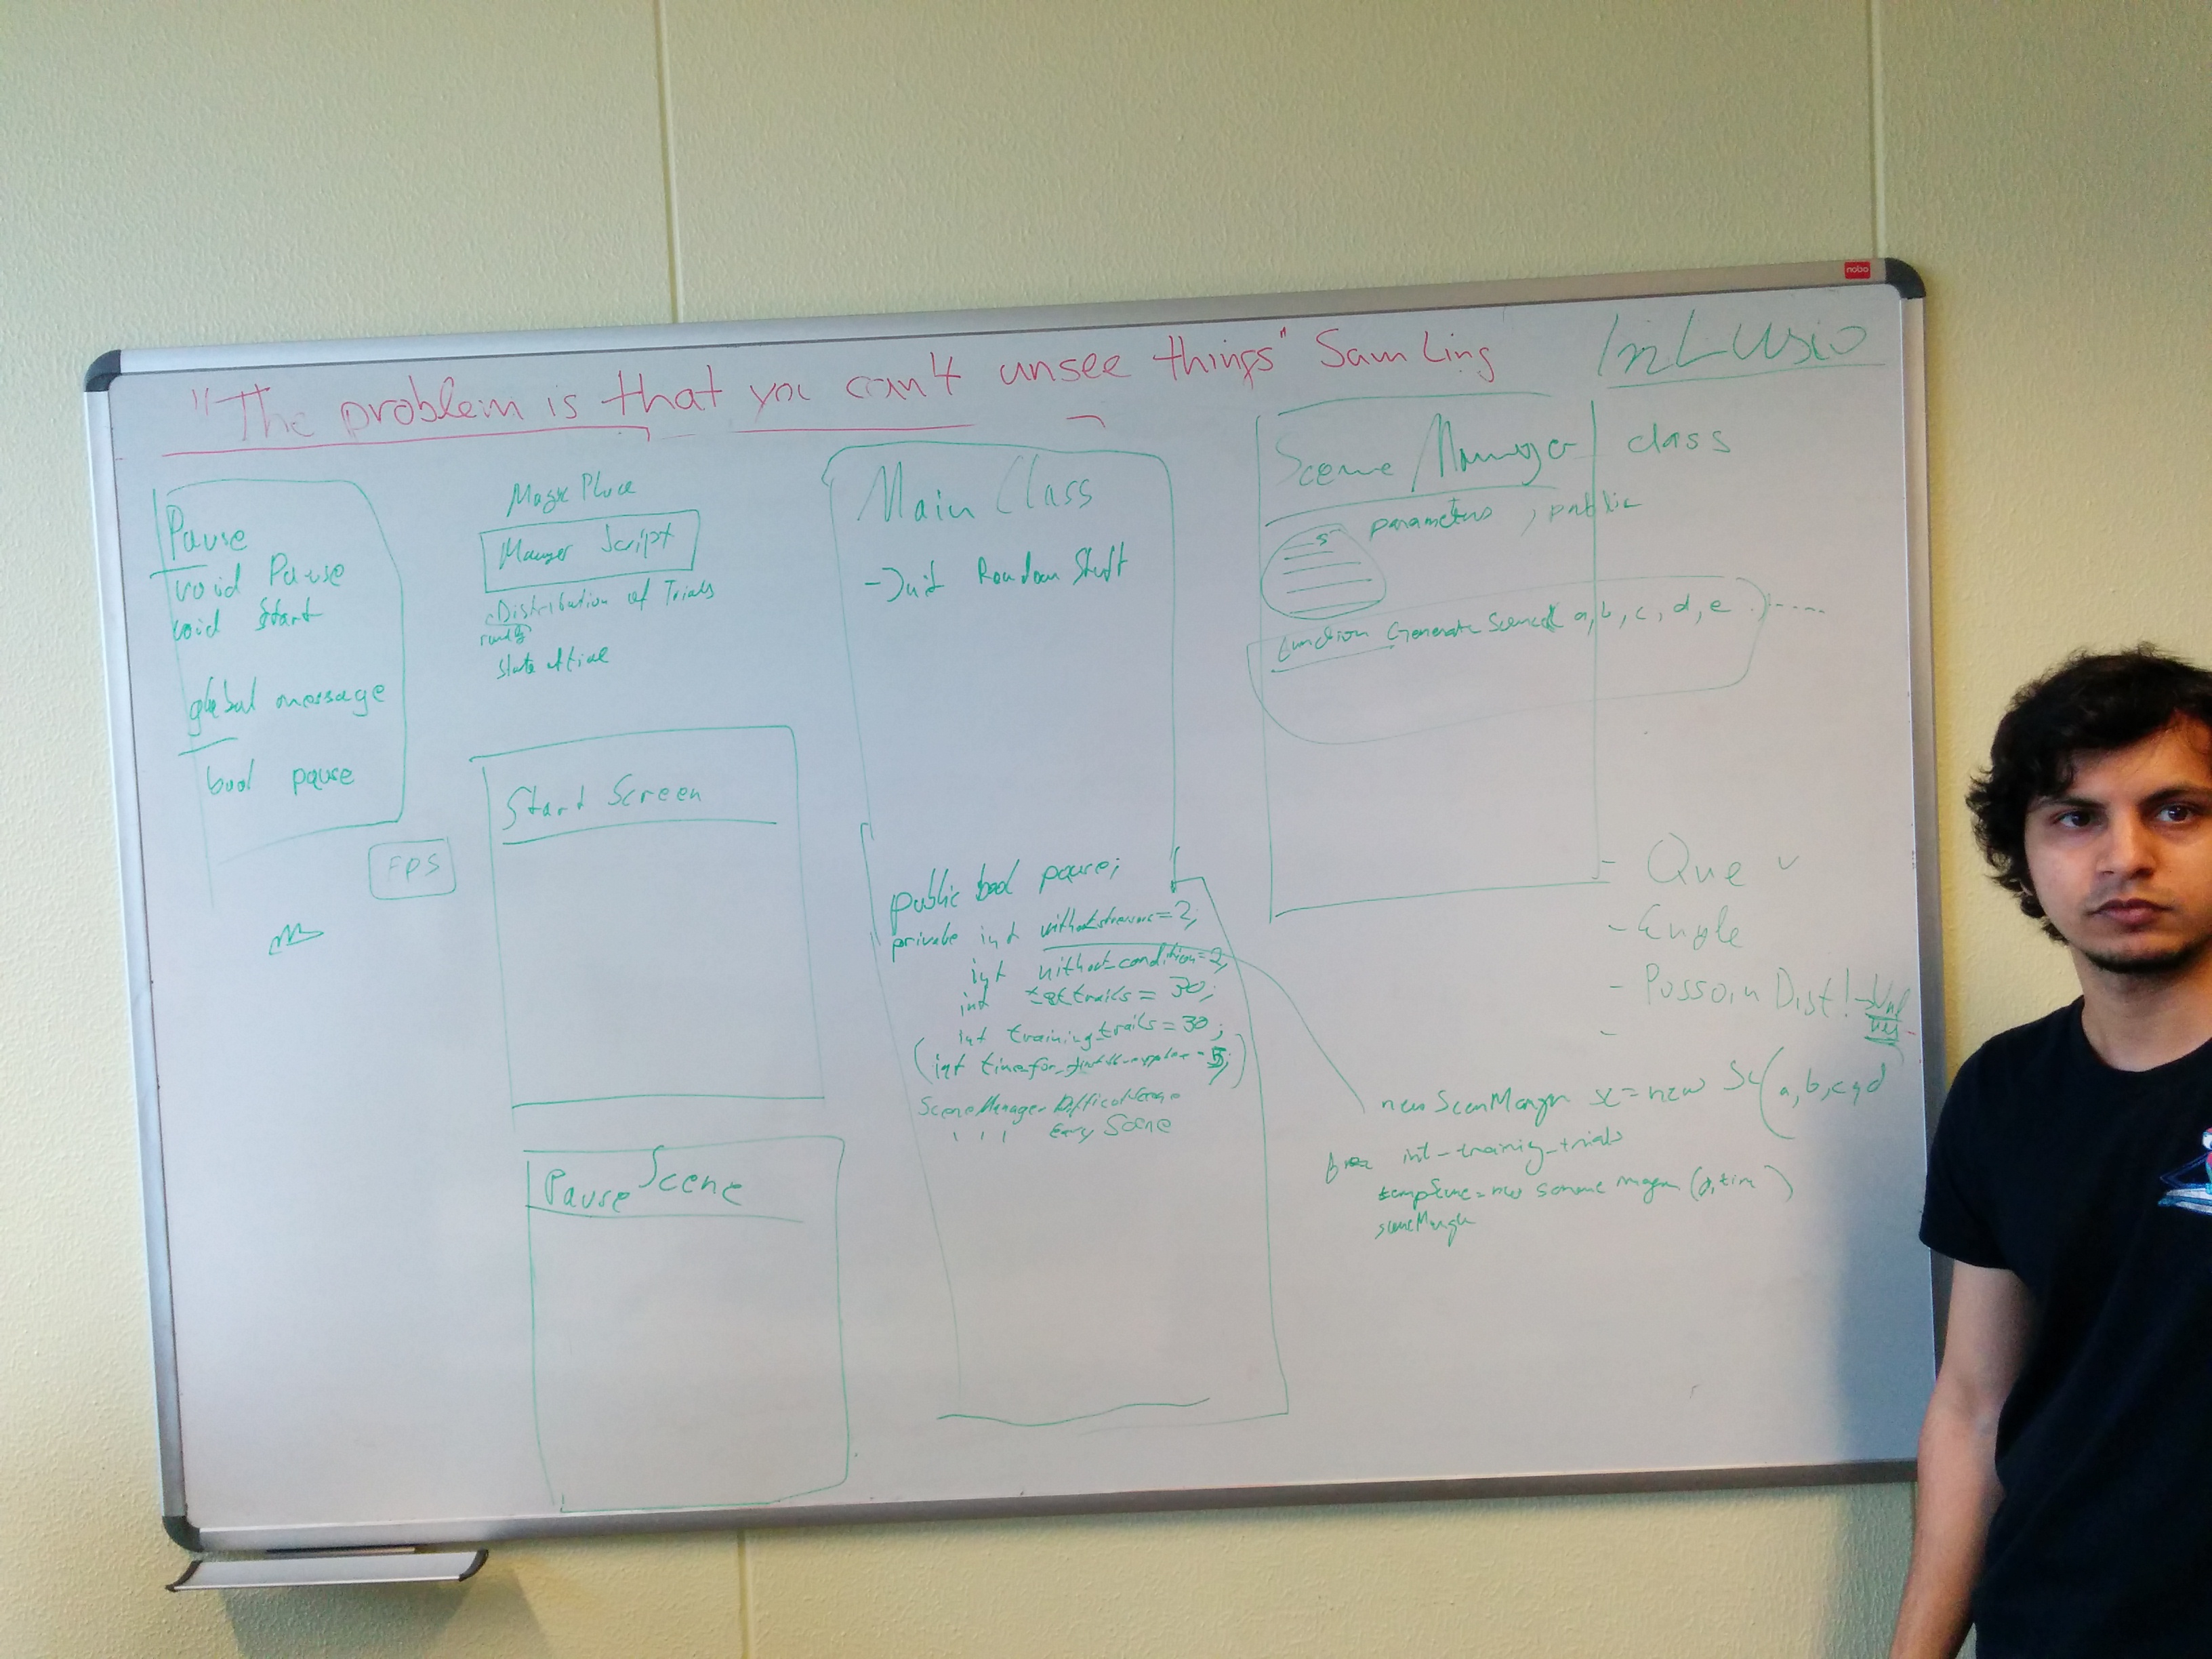 nobo
"The problem is that you can't unsee things" Sam Ling
InLusio
Pause
void Pause
void Start
global message
bool pause
FPS
Magic Place
Manger Script
Distribution of Trials
State of trial
Start Screen
Pause Scene
Main Class
- Init Random Stuff
public bool pause;
private int
int without_condition=2;
int trails = 30;
int training_trails = 30;
(int
SceneManager
Easy Scene
Scene Manager class
parameters, public
S
function Generate Scene( a, b, c, d, e ) .....
- Que
- Engle
- Possoin Dist!
-
new = new Sc(a, b, c, d
int_training_trials
= new (